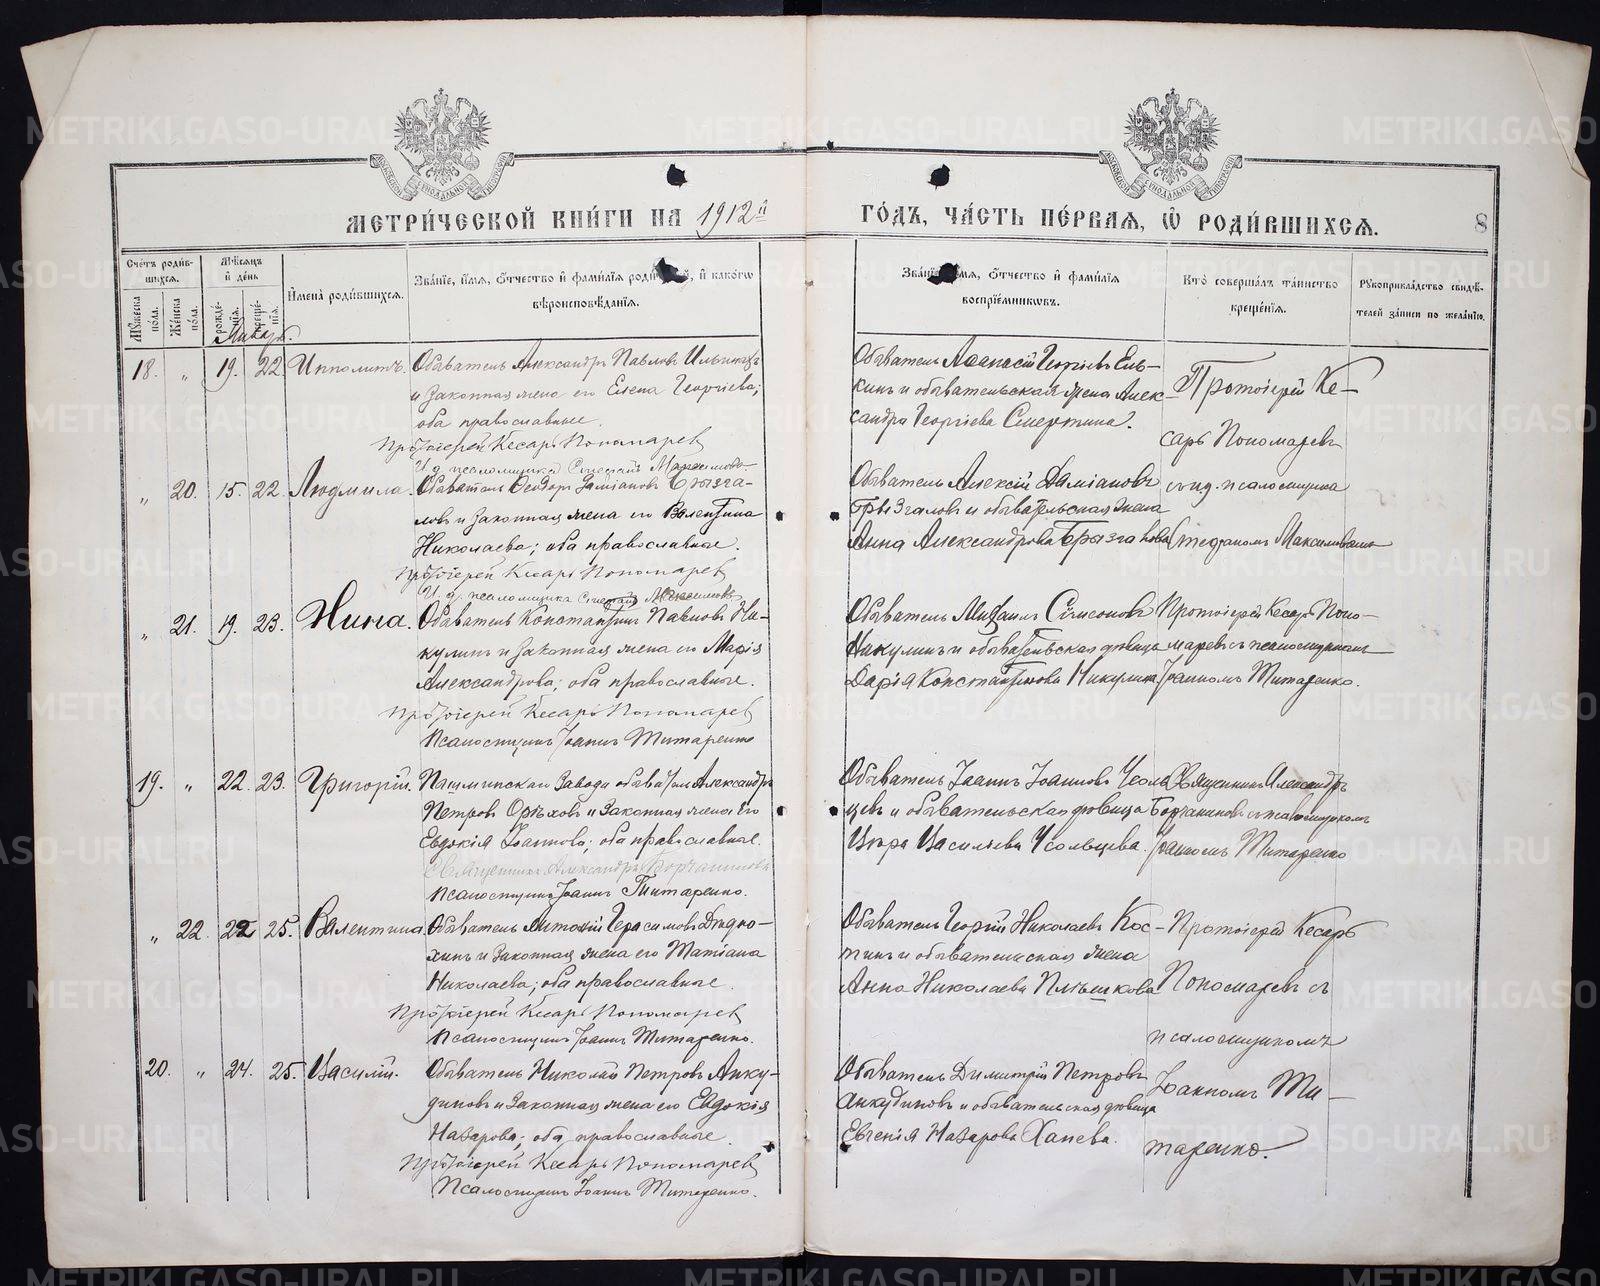 МЕТРИ́ЧЕСКОЙ КНИ́ГИ НА 1912й
ГО́ДЪ, ЧА́СТЬ ПЕ́РВАЯ, Ѽ РОДИ́ВШИХСЯ.
8
Сче́тъ роди́вшихся.
Му́жеска по́ла.
Же́нска по́ла.
Мѣ́сяцъ и҆ де́нь
рожде́нїя.
креще́нїя.
И҆мена̀ роди́вшихся.
Зва́нїе, и҆́мя, ѻ҆́тчество и҆ фами́лїя роди́ й, и҆ како́гѡ
вѣроисповѣ́данїя.
Зва́нїе мя, ѻ҆́тчество и҆ фами́лїя
воспрїе́мникѡвъ.
Кто̀ соверша́лъ та́инство
креще́нїя.
Рꙋкоприкла́дство свидѣ́-
телей за́писи по жела́нїю.
Январь.
18. „ 19. 22. Ипполитъ.
Обыватель Александръ Павловъ
и законная жена его Елена Георгіева;
оба православные.
Протоіерей Кесарь Пономаревъ
И. д. псаломщика Стефанъ
Обыватель Аѳанасій Георгіевъ Ель-
кинъ и обывательская жена Алек-
сандра Георгіева Смертина.
Протоіерей Ке-
сарь Пономаревъ
съ и. д. псаломщика
Стефаномъ
„ 20. 15. 22. Людмила.
Обыватель Ѳеодоръ Даміановъ Брызга-
ловъ и законная жена его Валентина
Николаева; оба православные.
Протоіерей Кесарь Пономаревъ
И. д. псаломщика Стефанъ
Обыватель Алексій Даміановъ
Брызгаловъ и обывательская жена
Анна Александрова Брызгалова
„ 21. 19. 23. Нина.
Обыватель Константинъ Павловъ Ни-
кулинъ и законная жена его Марія
Александрова; оба православные.
Протоіерей Кесарь Пономаревъ
Псаломщикъ Іоаннъ Титаренко
Обыватель Михаилъ Сѵмеоновъ
Никулинъ и обывательская дѣвица
Дарія Константинова Никулина
Протоіерей Кесарь Поно-
маревъ съ псаломщикомъ
Іоанномъ Титаренко.
19. „ 22. 23. Григорій.
Пышминскаго Завода обыватель Александръ
Петровъ Орѣховъ и законная жена его
Евдокія Іоаннова; оба православные.
Священникъ Александръ
Псаломщикъ Іоаннъ Титаренко.
Обыватель Іоаннъ Іоанновъ Усоль-
цевъ и обывательская дѣвица
Васильева Усольцева.
Священникъ Александръ
съ псаломщикомъ
Іоанномъ Титаренко
„ 22. 22 25. Валентина
Обыватель Антоній Герасимовъ Дѣдю-
хинъ и законная жена его Татіана
Николаева; оба православные.
Протоіерей Кесарь Пономаревъ
Псаломщикъ Іоаннъ Титаренко.
Обыватель Георгій Николаевъ Кос-
тинъ и обывательская жена
Анна Николаева Плѣшкова
Протоіерей Кесарь
Пономаревъ съ
псаломщикомъ
Іоанномъ Ти-
таренко.
20. „ 24. 25. Василій.
Обыватель Николай Петровъ Анку-
диновъ и законная жена его Евдокія
Назарова; оба православные.
Протоіерей Кесарь Пономаревъ
Псаломщикъ Іоаннъ Титаренко.
Обыватель Димитрій Петровъ
Анкудиновъ и обывательская дѣвица
Евгенія Назарова Ханева.
METRIKI.GASO-URAL.RU